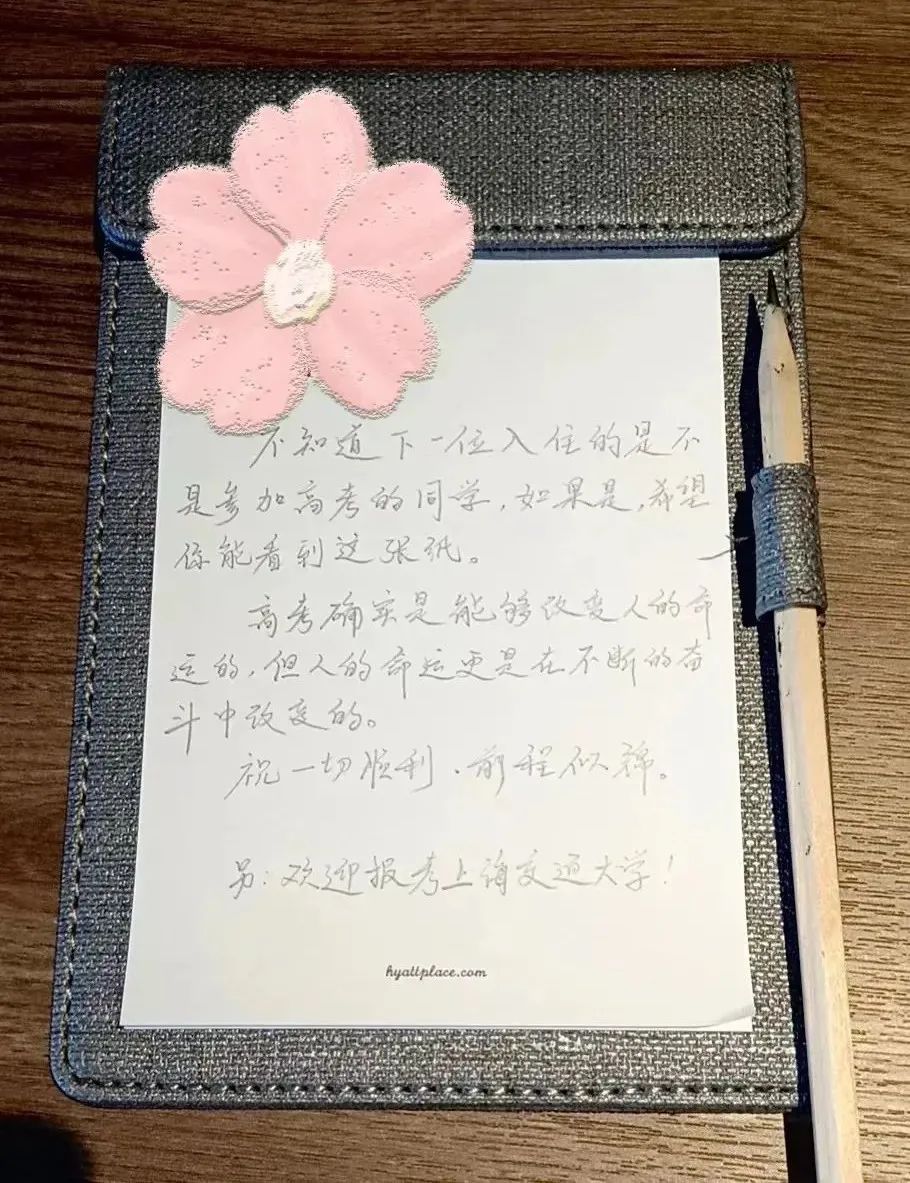 不知道下一位入住的是不
是参加高考的同学，如果是，希望
你能看到这张纸。
高考确实是能够改变人的命
运的，但人的命运更是在不断的奋
斗中改变的。
祝一切顺利、前程似锦。
另：欢迎报考上海交通大学！
hyattplace.com